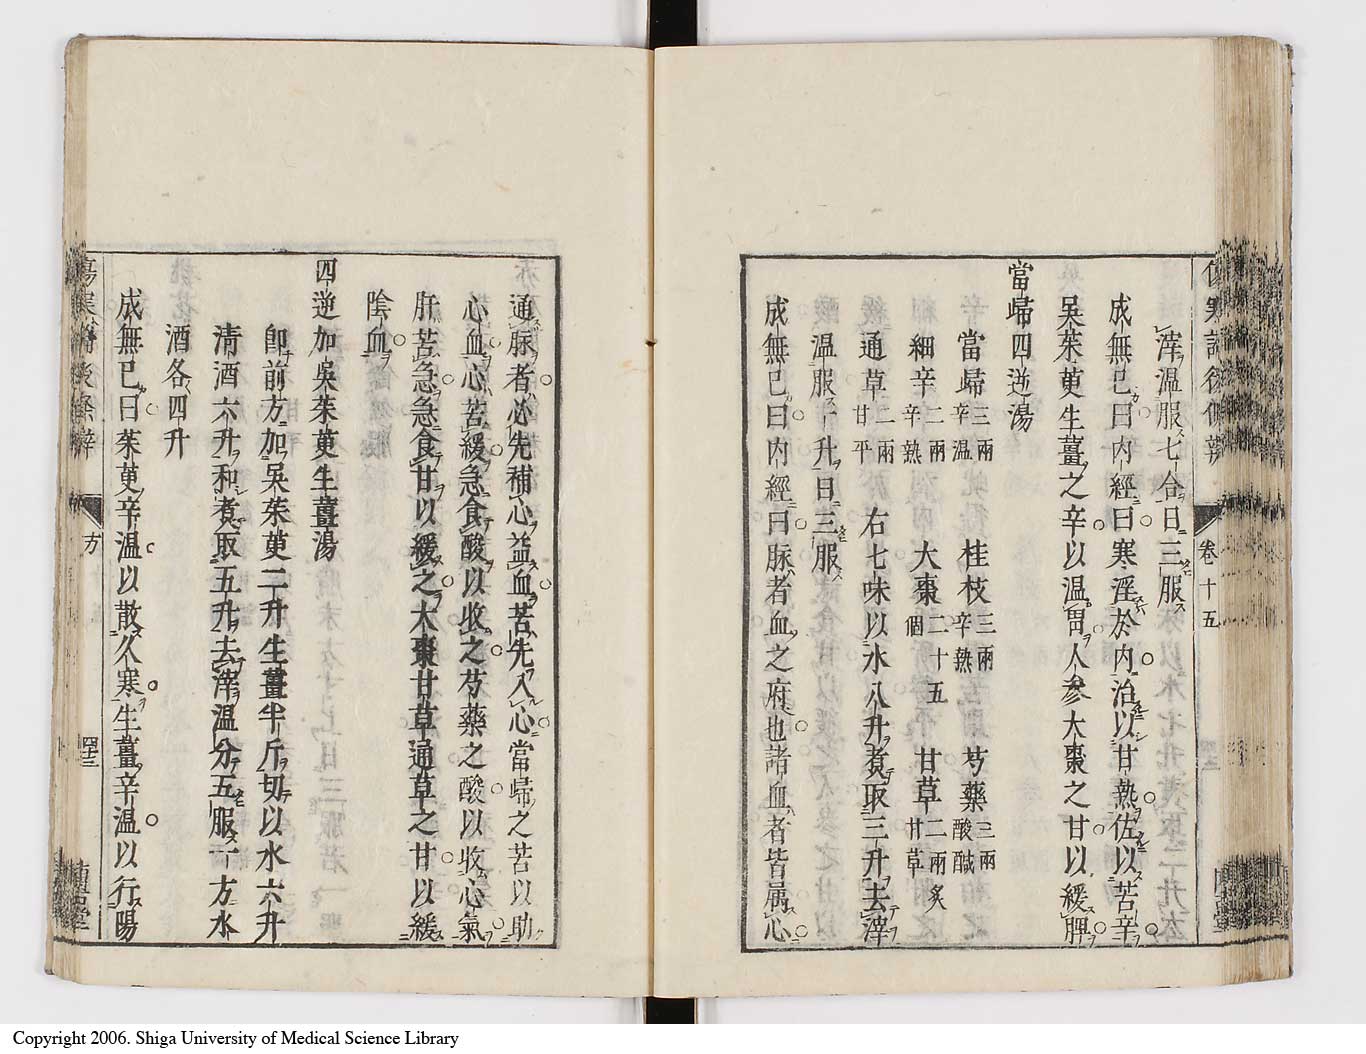 滓温服七合日三服
成無已曰内經曰寒淫於内治以甘熱佐以苦辛
吳茱萸生薑之辛以温胃人參大棗之甘以緩脾
當歸四逆湯
當歸三兩辛温 桂枝三兩辛熱 芍藥三兩酸醎
細辛二兩辛熱 大棗二十五個 甘草二兩炙甘草
通草二兩甘平 右七味以水八升煮取三升去滓
温服一升日三服
成無已曰内經曰脉者血之府也諸血者皆属心
通脉者必先補心益血苦先入心當歸之苦以助
心血心苦緩急食酸以收之芍藥之酸以收心氣
肝苦急急食甘以緩之大棗甘草通草之甘以緩
陰血
四逆加吳茱萸生薑湯
卽前方加吳茱萸二升生薑半斤切以水六升
清酒六升和煮取五升去滓温分五服一方水
酒各四升
成無已曰茱萸辛温以散久寒生薑辛温以行陽
卷十五
方
Copyright 2006. Shiga University of Medical Science Library